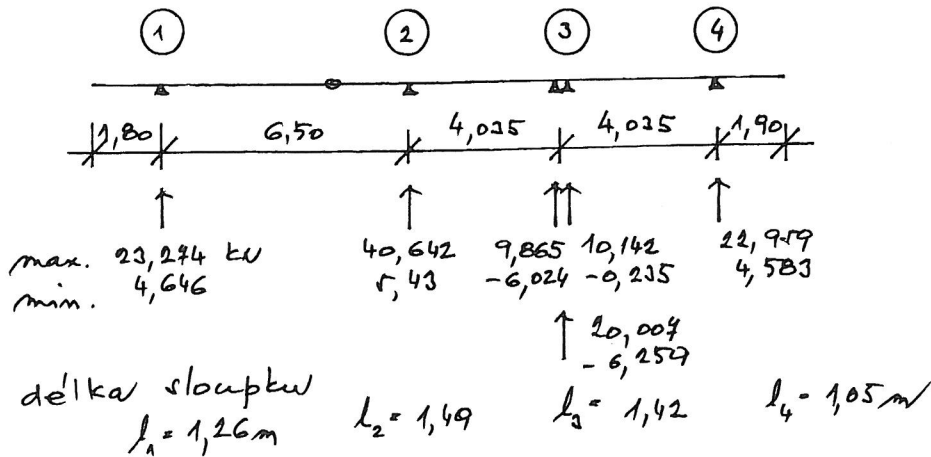 1 2 3 4
1,80 6,50 4,035 4,035 1,90
max. 23,274 kN 40,642 9,865 10,142 22,959
min. 4,646 5,43 -6,024 -0,235 4,583
20,007
-6,259
délka sloupku
l₁= 1,26m l₂= 1,49 l₃= 1,42 l₄= 1,05 m